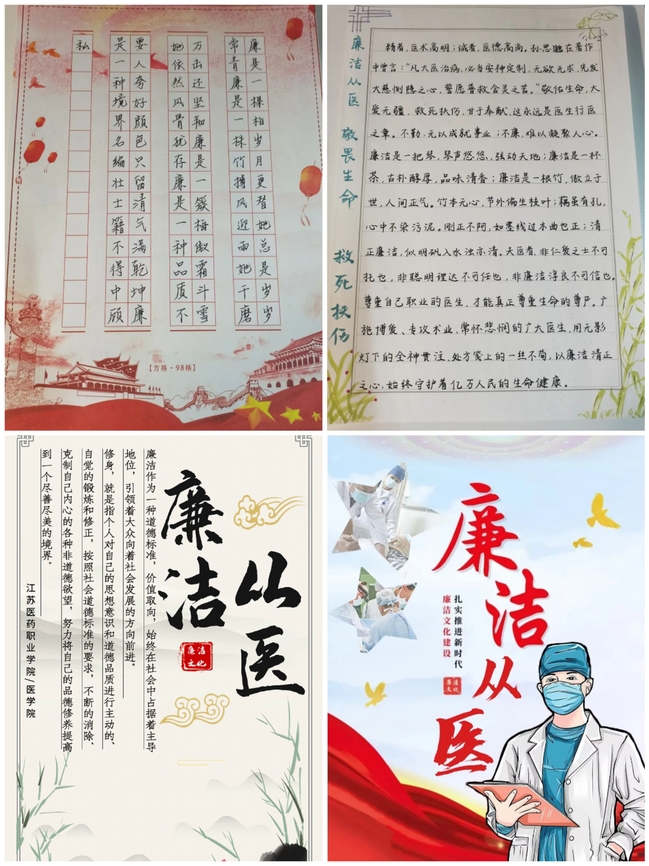 廉是一棵柏岁月更替她总是岁岁
常青廉是一株竹搏风迎面她千磨
万击还坚和廉是一簇梅傲霜斗雪
她依然风骨犹存廉是一种品质不
要人夸好颜色只留清气满乾坤廉
是一种境界名编壮士籍不得中顾
私
【方格·98格】
廉洁从医 敬畏生命 救死扶伤
精者,医术高明;诚者,医德高尚。孙思邈在著作
中曾言:“凡大医治病,必当安神定制,无欲无求,先发
大慈恻隐之心,誓愿普救含灵之苦。”敬佑生命,大
爱无疆,救死扶伤,甘于奉献,这永远是医生行医
之章。不勤,无以成就事业;不廉,难以凝聚人心。
廉洁是一把琴,琴声悠悠,弦动天地;廉洁是一杯
茶,古朴醇厚,品味清香;廉洁是一根竹,傲立于
世,人间正气。竹本无心,节外偏生枝叶;藕虽有孔,
心中不染污泥,刚正不阿,如墨线过木曲也正;清
正廉洁,似明矾入水浊亦清。夫医者,非仁爱之士不可
托也,非聪明理达不可任也,非廉洁淳良不可信也。
尊重自己职业的医生,才能真正尊重生命的尊严。广
施博爱、专攻术业、常怀悲悯的广大医生,用无影
灯下的全神贯注,处方笺上的一丝不苟,以廉洁清正
之心,始终守护着亿万人民的生命健康。
廉洁
从医
廉洁
文化
廉洁作为一种道德标准,价值取向,始终在社会中占据着主导
地位,引领着大众向着社会发展的方向前进。
修身,就是指个人对自己的思想意识和道德品质进行主动的、
自觉的锻炼和修正,按照社会道德标准的要求,不断的消除、
克制自己内心的各种非道德欲望,努力将自己的品德修养提高
到一个尽善尽美的境界。
江苏医药职业学院/医学院
廉洁从医
扎实推进新时代
廉洁文化建设